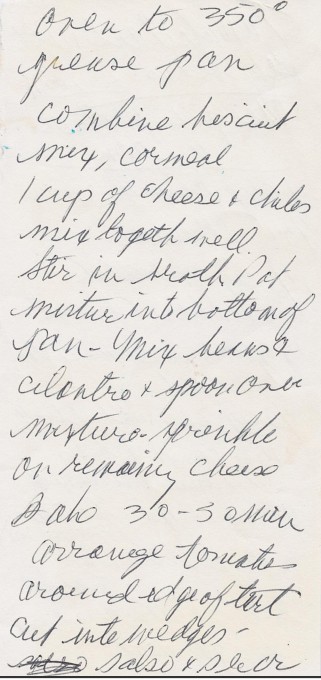 oven to 350°
grease pan
combine biscuit
mix, cormeal
1 cup of cheese & chiles
mix togeth well
Stir in broth Pat
mixture into bottom of
pan - Mix beans &
cilantro & spoon over
mixture - sprinkle
on remaining cheese
Bake 30 -
arrange tomatoes
around edge of tart
cut into wedges -
salsa &